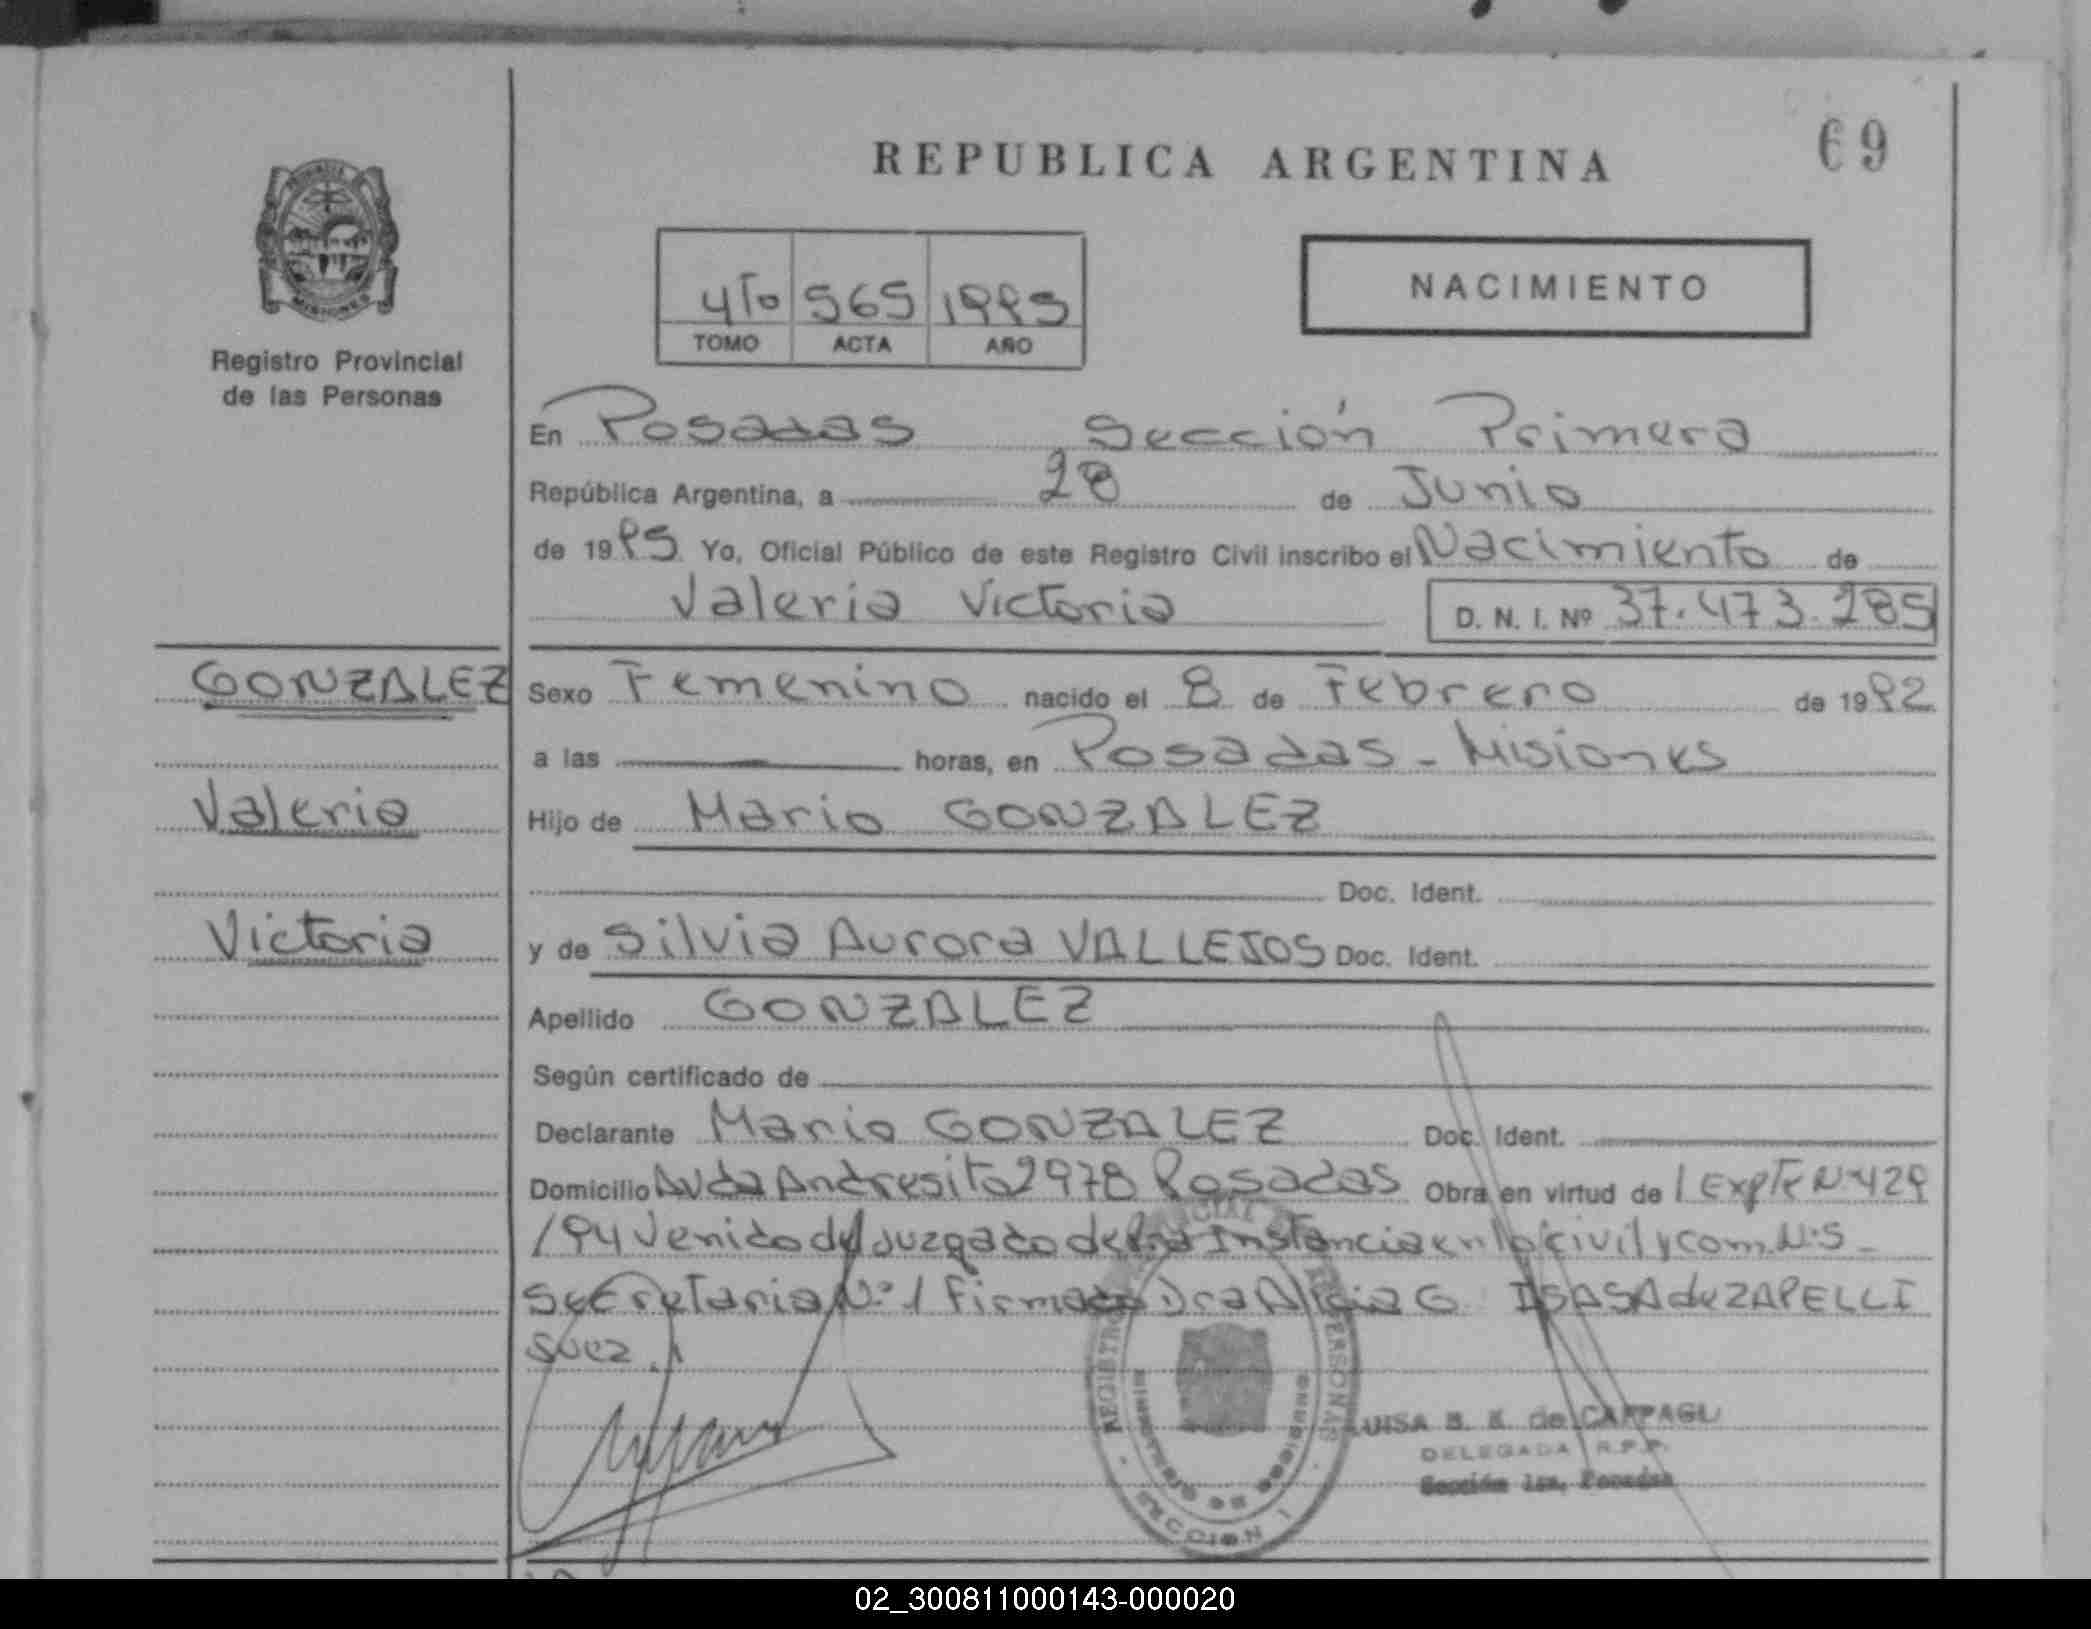 69
REPUBLICA ARGENTINA
4To 565 1995
TOMO ACTA AÑO
NACIMIENTO
MISIONES
Registro Provincial
de las Personas
En Posadas Sección Primera
República Argentina, a 28 de Junio
de 1995 Yo, Oficial Público de este Registro Civil inscribo el Nacimiento de
Valeria Victoria D. N. I. Nº 37.473.285
GONZALEZ
Sexo Femenino nacido el 8 de Febrero de 1992
a las horas, en Posadas - Misiones
Valeria
Hijo de Mario GONZALEZ
Doc. Ident.
Victoria
y de Silvia Aurora VALLEJOS Doc. Ident.
Apellido GONZALEZ
Según certificado de
Declarante Mario GONZALEZ Doc. Ident.
Domicilio Avda Andresito 2978 Posadas Obra en virtud de Expte Nº 429
/94 venido del Juzgado de 1ra Instancia en lo civil y com. N. 5
Secretaria Nº 1 Firmado Dra Alicia G. ISASA de ZAPELLI
Juez.
REGISTRO PROVINCIAL PERSONAS
SECCION 1
LUISA B. K. de
DELEGADA R.P.P.
Sección 1ra, Posadas
02_300811000143-000020